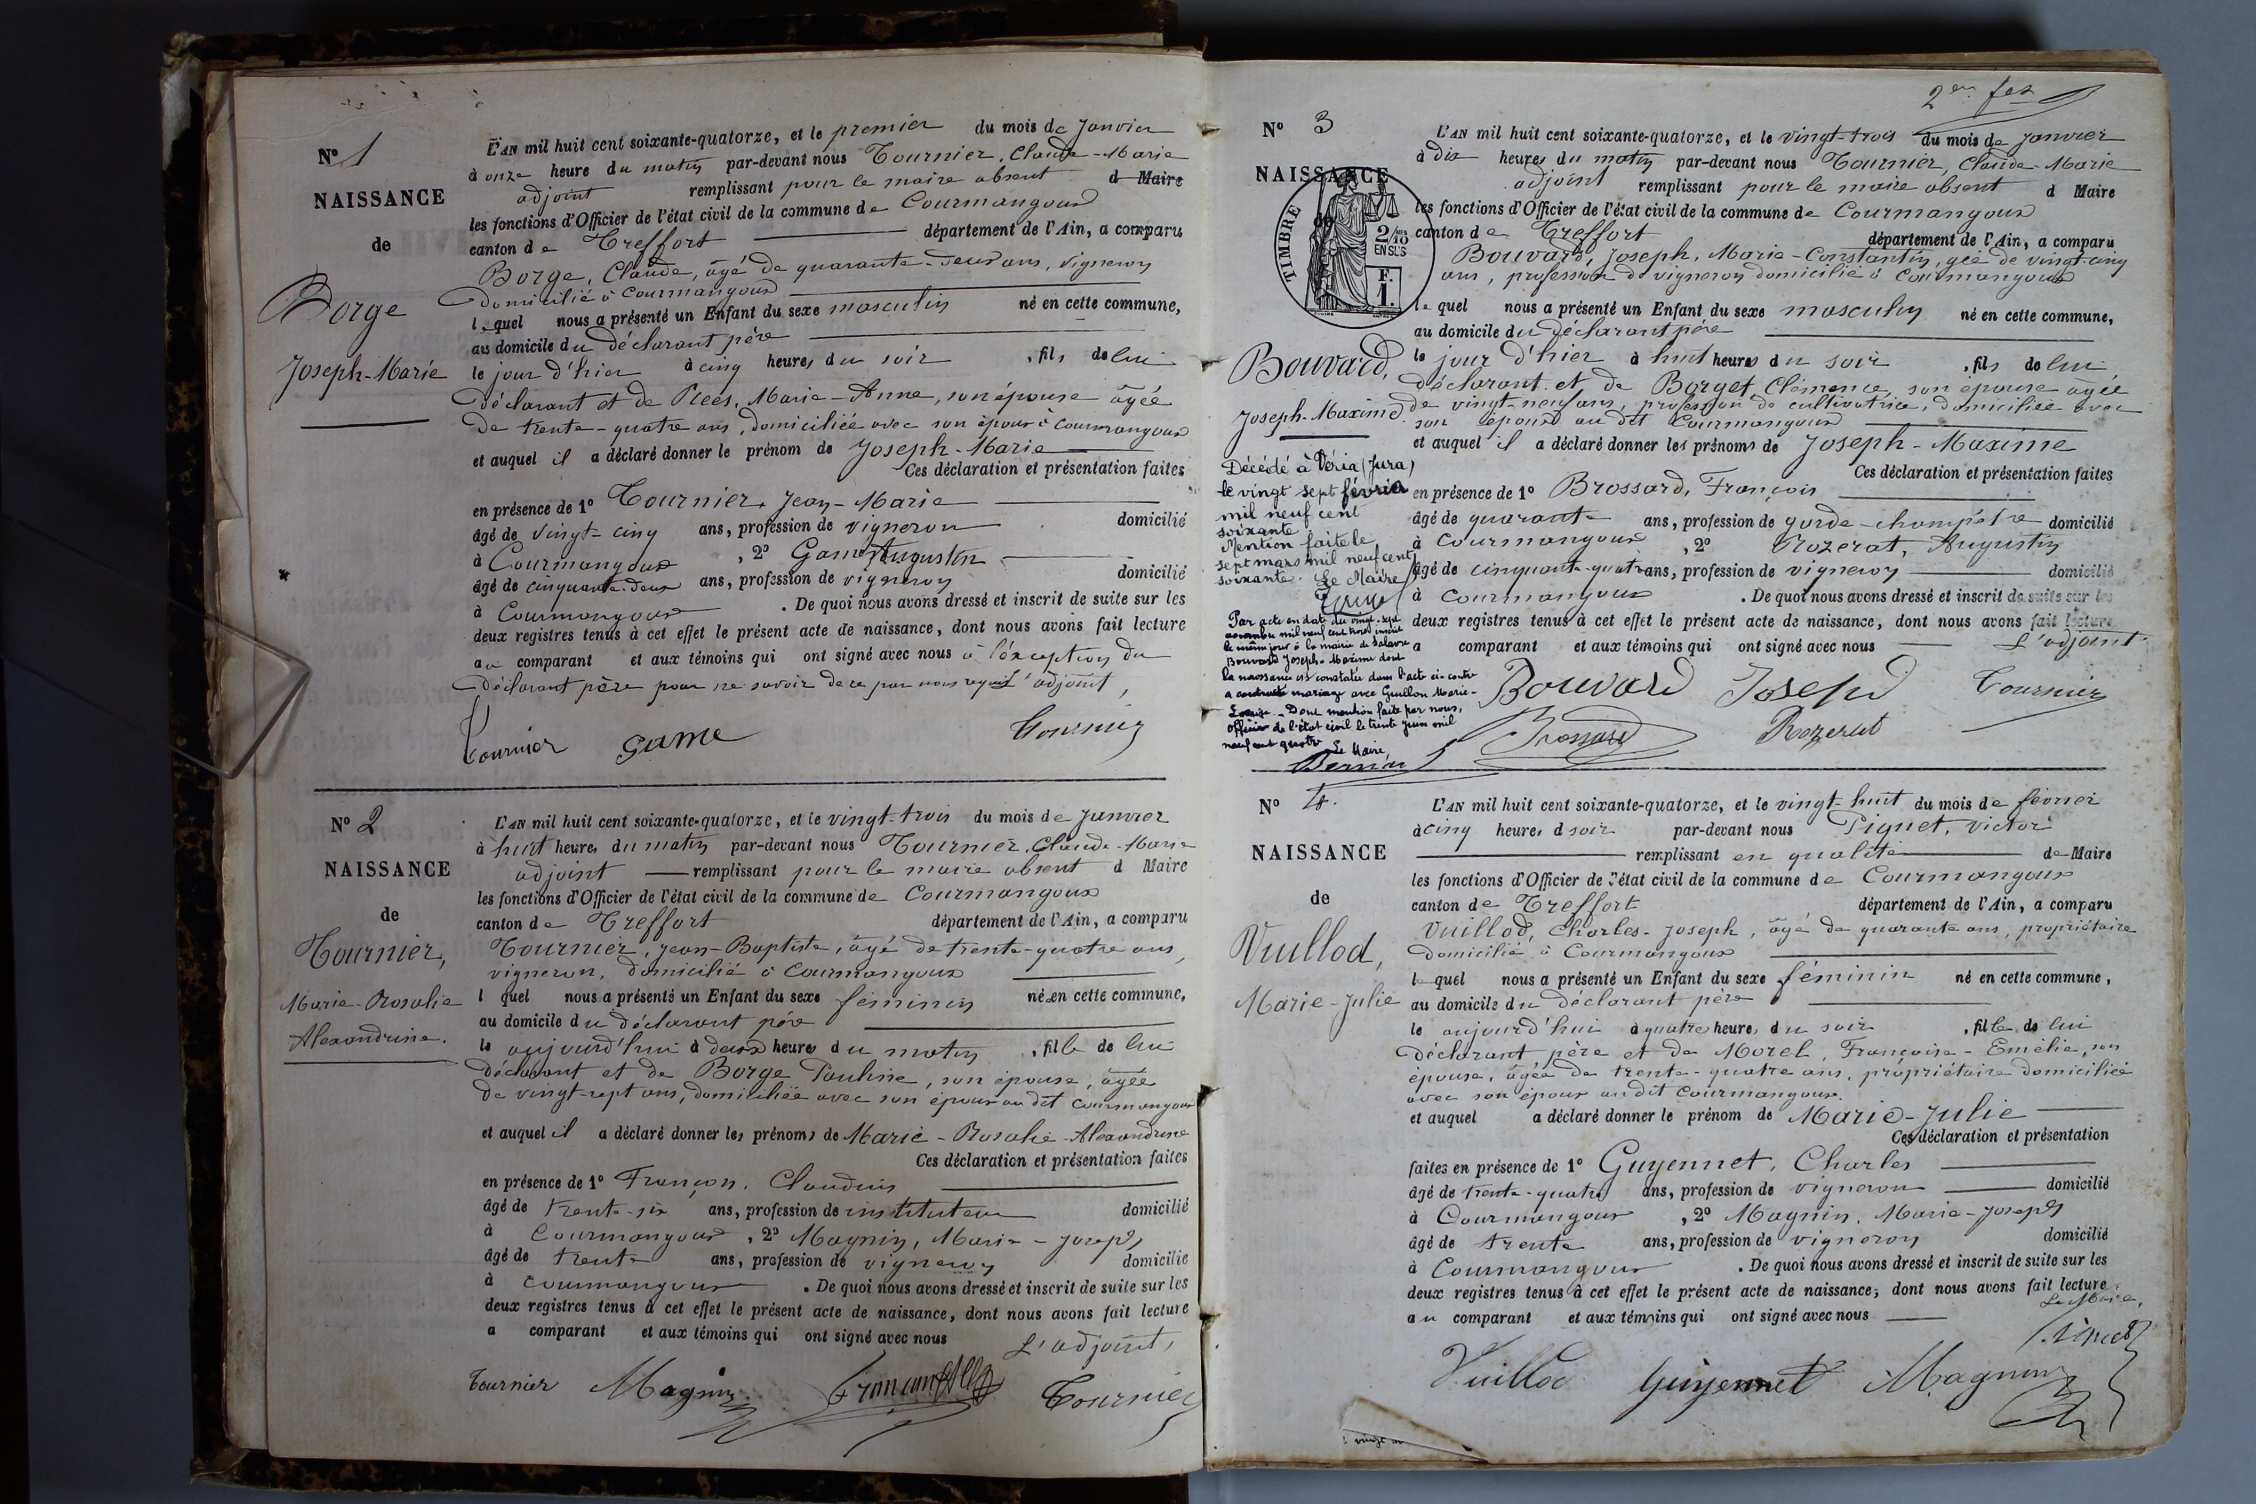 Nº 1
NAISSANCE
de
Borge
Joseph-Marie
L'AN mil huit cent soixante-quatorze, et le premier du mois de Janvier
à onze heure du matin par-devant nous Tournier, Claude-Marie
adjoint remplissant pour le maire absent d Maire
les fonctions d'Officier de l'état civil de la commune de Courmangoux
canton de Treffort département de l'Ain, a comparu
Borge, Claude, âgé de quarante-deux ans, vigneron
domicilié à Courmangoux
lequel nous a présenté un Enfant du sexe masculin né en cette commune,
au domicile du déclarant père
le jour d'hier à cinq heures du soir, fils de lui
déclarant et de Marie-Anne, son épouse âgée
de trente-quatre ans, domiciliée avec son époux à Courmangoux
et auquel il a déclaré donner le prénom de Joseph-Marie
Ces déclaration et présentation faites
en présence de 1º Tournier, Jean-Marie
âgé de vingt-cinq ans, profession de vigneron domicilié
à Courmangoux, 2º Game Augustin
âgé de cinquante-deux ans, profession de vigneron domicilié
à Courmangoux. De quoi nous avons dressé et inscrit de suite sur les
deux registres tenus à cet effet le présent acte de naissance, dont nous avons fait lecture
au comparant et aux témoins qui ont signé avec nous à l'exception du
déclarant père pour ne savoir de ce par nous requis L'adjoint,
Tournier Game Tournier
Nº 2
NAISSANCE
de
Tournier,
Marie-Rosalie
Alexandrine.
L'AN mil huit cent soixante-quatorze, et le vingt-trois du mois de Janvier
à huit heures du matin par-devant nous Tournier, Claude-Marie
adjoint remplissant pour le maire absent d Maire
les fonctions d'Officier de l'état civil de la commune de Courmangoux
canton de Treffort département de l'Ain, a comparu
Tournier, Jean-Baptiste, âgé de trente-quatre ans,
vigneron, domicilié à Courmangoux
l quel nous a présenté un Enfant du sexe féminin né en cette commune,
au domicile du déclarant père
le aujourd'hui à deux heures du matin, fille de lui
déclarant et de Borge Pauline, son épouse, âgée
de vingt-sept ans, domiciliée avec son époux au dit Courmangoux
et auquel il a déclaré donner les prénoms de Marie-Rosalie-Alexandrine
Ces déclaration et présentation faites
en présence de 1º Françon, Claudius
âgé de trente-six ans, profession de instituteur domicilié
à Courmangoux, 2º Magnin, Marie-Joseph
âgé de trente ans, profession de vigneron domicilié
à Courmangoux. De quoi nous avons dressé et inscrit de suite sur les
deux registres tenus à cet effet le présent acte de naissance, dont nous avons fait lecture
a comparant et aux témoins qui ont signé avec nous
L'adjoint,
Tournier Magnin Tournier
2en fet
Nº 3
NAISSANCE
de
TIMBRE
2/10
EN SUS
F.
1.
Bouvard,
Joseph-Maxime.
Décédé à Véria (Jura)
le vingt sept février
mil neuf cent
soixante
Mention faite le
sept mars mil neuf cent
soixante. Le Maire
Par acte en date du vingt-sept
mil neuf cent trois inscrit
le même jour à la mairie de Salavre
Bouvard Joseph-Maxime dont
la naissance est constatée dans l'acte ci-contre
a contracté mariage avec Guillon Marie-
Louise. Dont mention faite par nous,
officier de l'état civil le trente juin mil
neuf cent quatre Le Maire,
L'AN mil huit cent soixante-quatorze, et le vingt-trois du mois de Janvier
à dix heures du matin par-devant nous Tournier, Claude-Marie
adjoint remplissant pour le maire absent d Maire
les fonctions d'Officier de l'état civil de la commune de Courmangoux
canton de Treffort département de l'Ain, a comparu
Bouvard, Joseph, Marie-Constantin, âgé de vingt-cinq
ans, profession de vigneron domicilié à Courmangoux
lequel nous a présenté un Enfant du sexe masculin né en cette commune,
au domicile du déclarant père
le jour d'hier à huit heures du soir, fils de lui
déclarant et de Borget Clémence, son épouse âgée
de vingt-neuf ans, profession de cultivatrice, domiciliée avec
son époux au dit Courmangoux
et auquel il a déclaré donner les prénoms de Joseph-Maxime
Ces déclaration et présentation faites
en présence de 1º Brossard, François
âgé de quarante ans, profession de garde-champêtre domicilié
à Courmangoux, 2º Rozerat, Augustin
âgé de cinquante-quatre ans, profession de vigneron domicilié
à Courmangoux. De quoi nous avons dressé et inscrit de suite sur les
deux registres tenus à cet effet le présent acte de naissance, dont nous avons fait lecture
a comparant et aux témoins qui ont signé avec nous L'adjoint
Bouvard Joseph Tournier
Brossard Rozerat
Nº 4.
NAISSANCE
de
Vuillod,
Marie-Julie
L'AN mil huit cent soixante-quatorze, et le vingt-huit du mois de février
à cinq heures d soir par-devant nous Piquet, Victor
remplissant en qualité de Maire
les fonctions d'Officier de l'état civil de la commune de Courmangoux
canton de Treffort département de l'Ain, a comparu
Vuillod, Charles-Joseph, âgé de quarante ans, propriétaire
domicilié à Courmangoux
lequel nous a présenté un Enfant du sexe féminin né en cette commune,
au domicile du déclarant père
le aujourd'hui à quatre heures du soir, fille de lui
déclarant père et de Morel, Françoise-Emélie, son
épouse, âgée de trente-quatre ans, propriétaire domiciliée
avec son époux au dit Courmangoux.
et auquel a déclaré donner le prénom de Marie-Julie
Ces déclaration et présentation
faites en présence de 1º Guyennet, Charles
âgé de trente-quatre ans, profession de vigneron domicilié
à Courmangoux, 2º Magnin, Marie-Joseph
âgé de trente ans, profession de vigneron domicilié
à Courmangoux. De quoi nous avons dressé et inscrit de suite sur les
deux registres tenus à cet effet le présent acte de naissance, dont nous avons fait lecture
au comparant et aux témoins qui ont signé avec nous
Le Maire,
Vuillod Guyennet Magnin